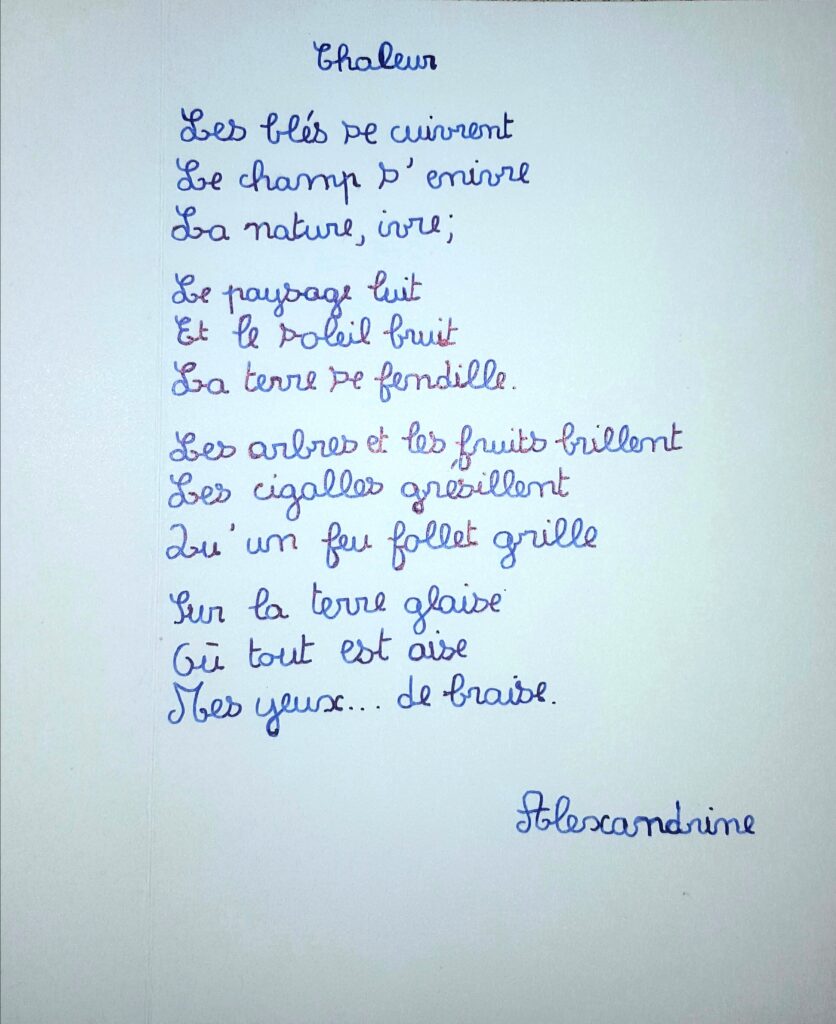 Chaleur
Les blés se cuivrent
Le champ s'enivre
La nature, ivre;
Le paysage luit
Et le soleil bruit
La terre se fendille.
Les arbres et les fruits brillent
Les cigalles grésillent
Qu'un feu follet grille
Sur la terre glaise
Où tout est aise
Mes yeux... de braise.
Alexandrine